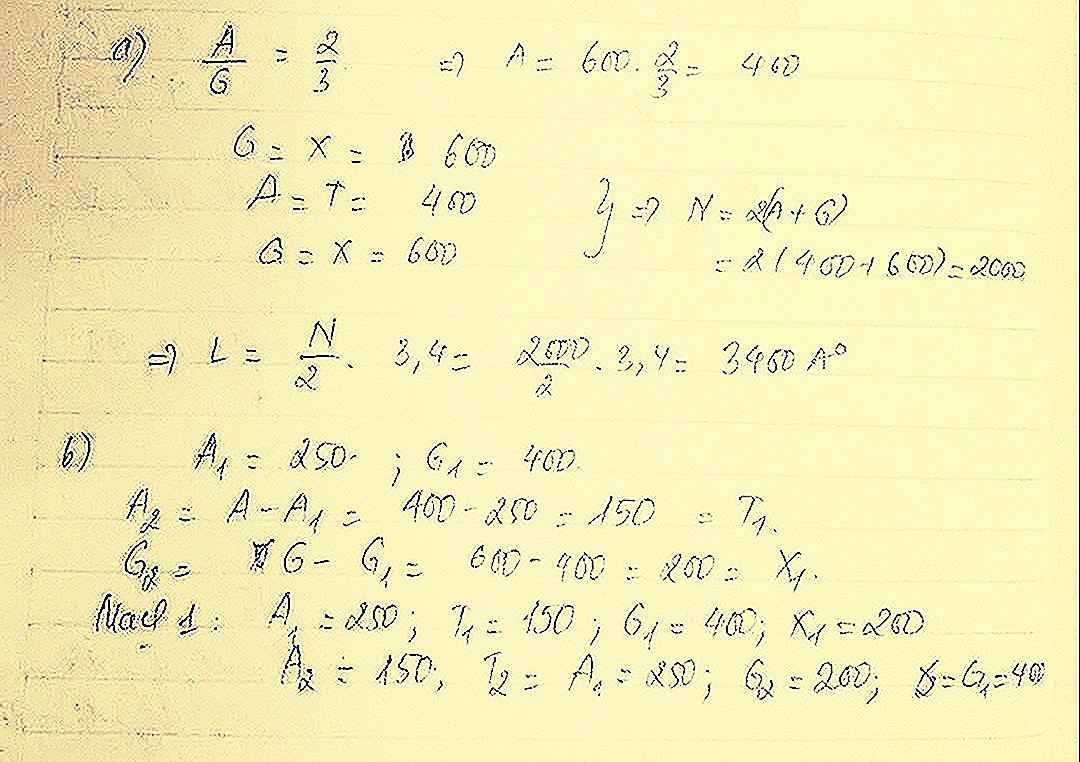 a) A/G = 2/3 => A = 600 . 2/3 = 400
G = X = 600
A = T = 400
G = X = 600
} => N = 2(A + G)
= 2(400 + 600) = 2000
=> L = N/2 . 3,4 = 2000/2 . 3,4 = 3400 A°
b) A₁ = 250 ; G₁ = 400.
A₂ = A - A₁ = 400 - 250 = 150 = T₁.
G₂ = G - G₁ = 600 - 400 = 200 = X₁.
Mạch 1: A₁ = 250; T₁ = 150; G₁ = 400; X₁ = 200
A₂ = 150; T₂ = A₁ = 250; G₂ = 200; X₂ = G₁ = 400